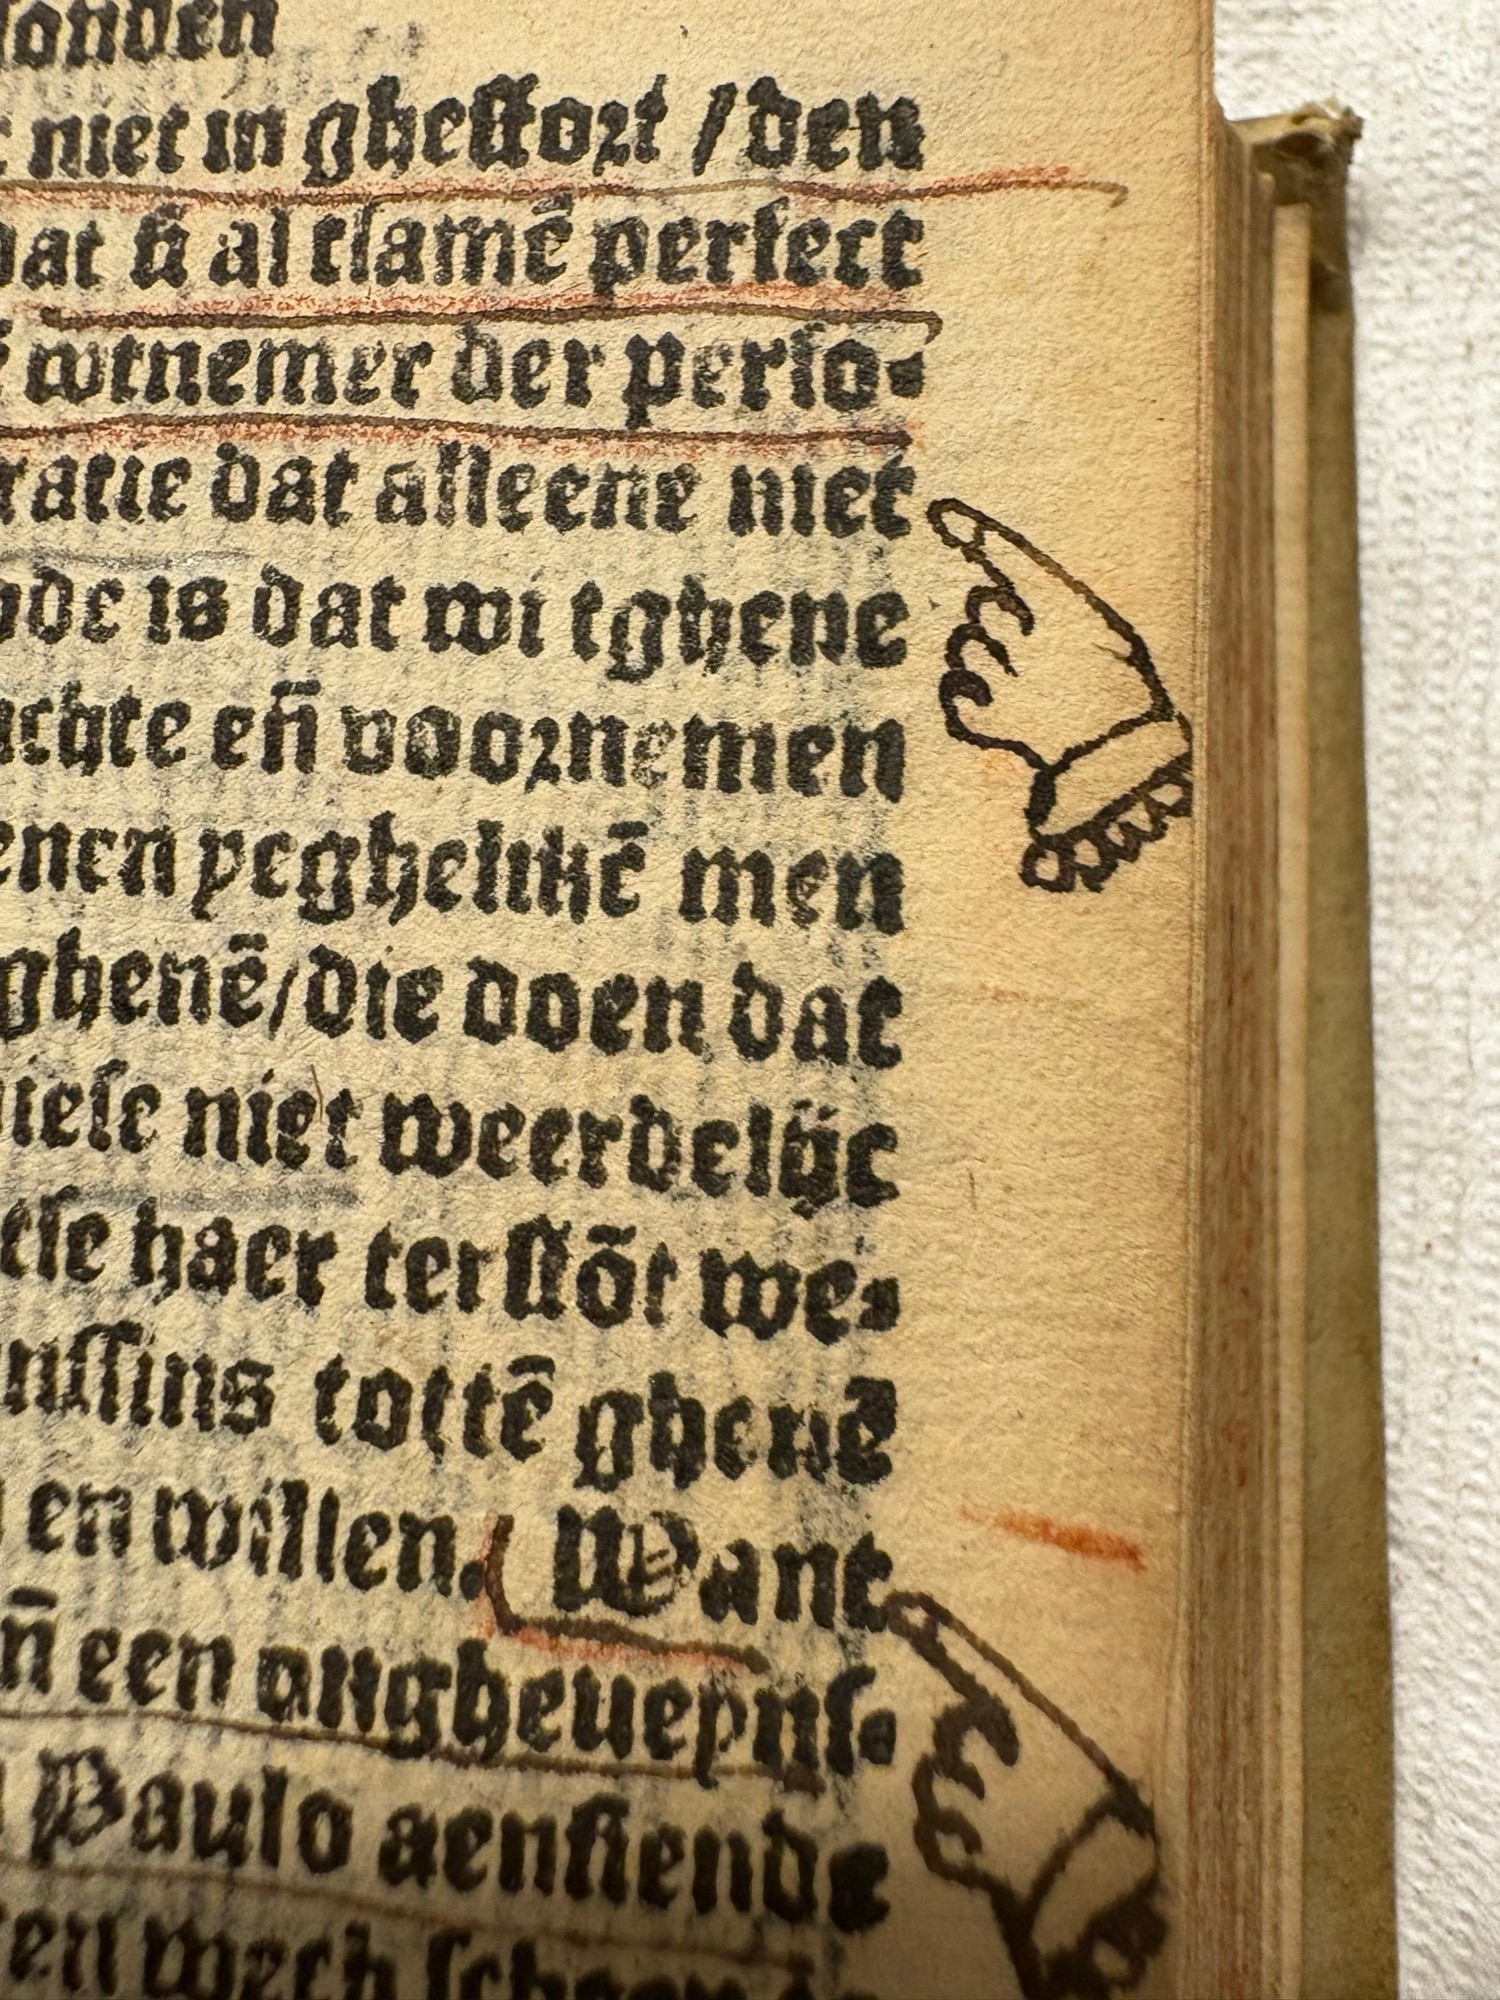 sonden
niet in ghestort / den
dat si al tsamē perfect
wtnemer der perso-
ratie dat alleene niet
nde is dat wi tghene
achte eñ voornemen
enen yeghelikē men
ghenē/die doen dat
niet weerdelijc
tse haer terstōt we-
tottē ghenē
en willen. Want
eñ een ongheueyns-
Paulo aensiende
en wech